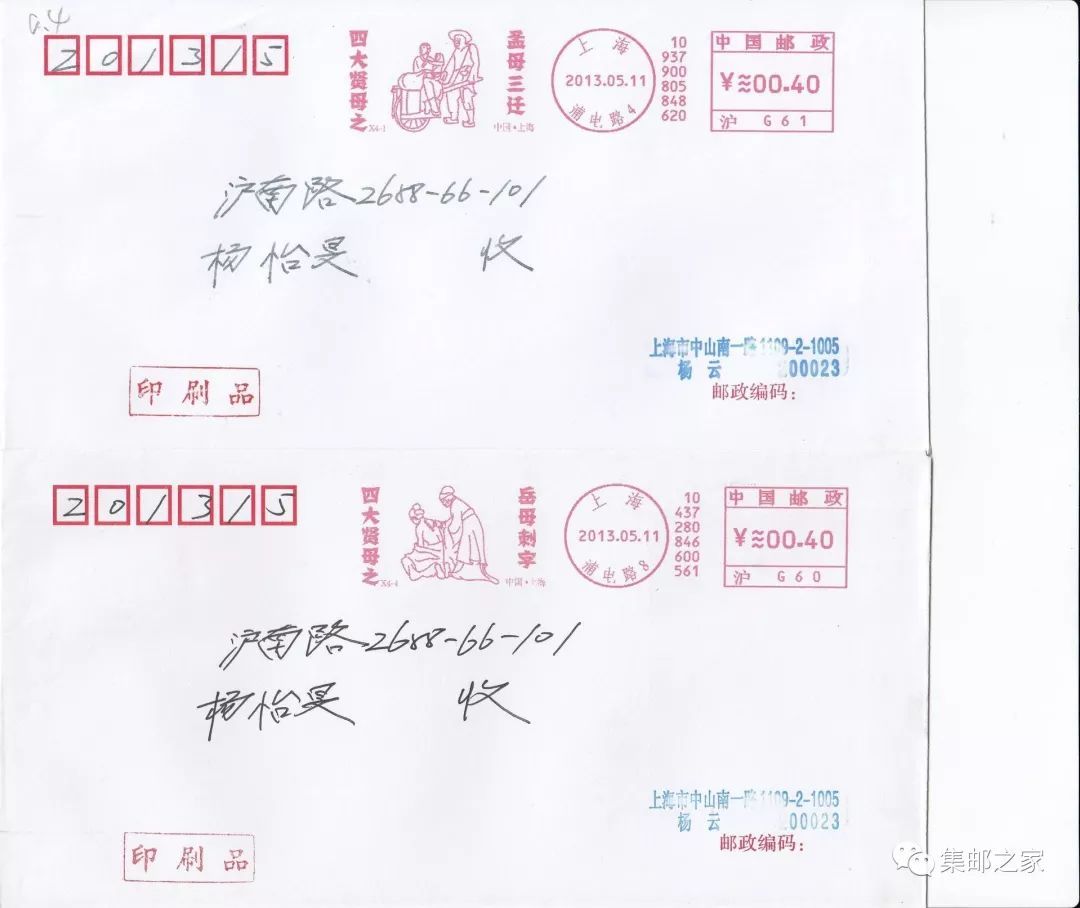 0.4
201315
四大贤母之
X4-1
孟母三迁
中国·上海
上海
2013.05.11
浦电路4
10
937
900
805
848
620
中国邮政
¥≈00.40
沪 G61
沪南路2688-66-101
杨怡旻 收
上海市中山南一路1109-2-1005
杨云 200023
邮政编码：
印刷品
201315
四大贤母之
X4-4
岳母刺字
中国·上海
上海
2013.05.11
浦电路8
10
437
280
846
600
561
中国邮政
¥≈00.40
沪 G60
沪南路2688-66-101
杨怡旻 收
上海市中山南一路1109-2-1005
杨云 00023
邮政编码：
印刷品
集邮之家